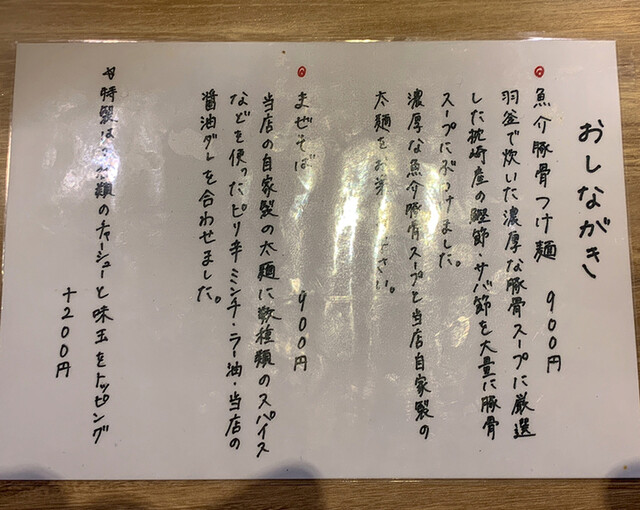 おしながき
魚介豚骨つけ麺 900円
羽釜で炊いた濃厚な豚骨スープに厳選
した枕崎産の鰹節・サバ節を大量に豚骨
スープにぶつけました。
濃厚な魚介豚骨スープと当店自家製の
太麺をお さい。
まぜそば 900円
当店の自家製の太麺に数種類のスパイス
などを使ったピリ辛ミンチ・ラー油・当店の
醤油ダレを合わせました。
特製は 種類のチャーシューと味玉をトッピング
+200円